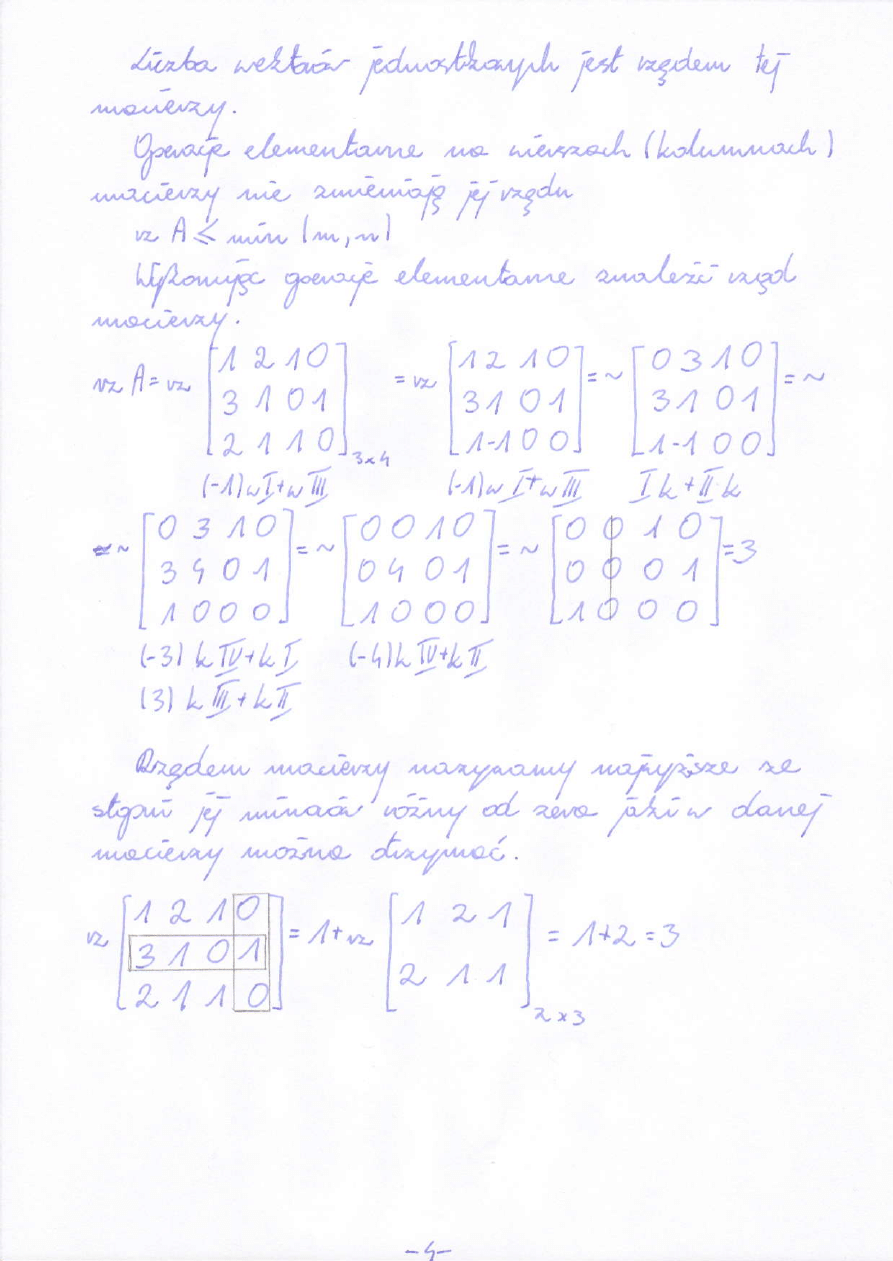 Liczba wektorów jednostkowych jest rzędem tej
macierzy.
Operacje elementarne na wierszach (kolumnach)
macierzy nie zmieniają jej rzędu
rz A ≤ min (m, n)
Wykonując operacje elementarne znaleźć rząd
macierzy.
rz A = rz [1 2 1 0; 3 1 0 1; 2 1 1 0] 3x4 = rz [1 2 1 0; 3 1 0 1; 1 -1 0 0] = ~ [0 3 1 0; 3 1 0 1; 1 -1 0 0] = ~
(-1) w I + w III (-1) w I + w III I k + II k
= ~ [0 3 1 0; 3 4 0 1; 1 0 0 0] = ~ [0 0 1 0; 0 4 0 1; 1 0 0 0] = ~ [0 0 1 0; 0 0 0 1; 1 0 0 0] = 3
(-3) k IV + k I (-4) k IV + k II
(3) k III + k II
Rzędem macierzy nazywamy najwyższe ze
stopni jej minorów różny od zera jaki w danej
macierzy można otrzymać.
rz [1 2 1 0; 3 1 0 1; 2 1 1 0] = 1 + rz [1 2 1; 2 1 1] 2x3 = 1+2 = 3
-4-